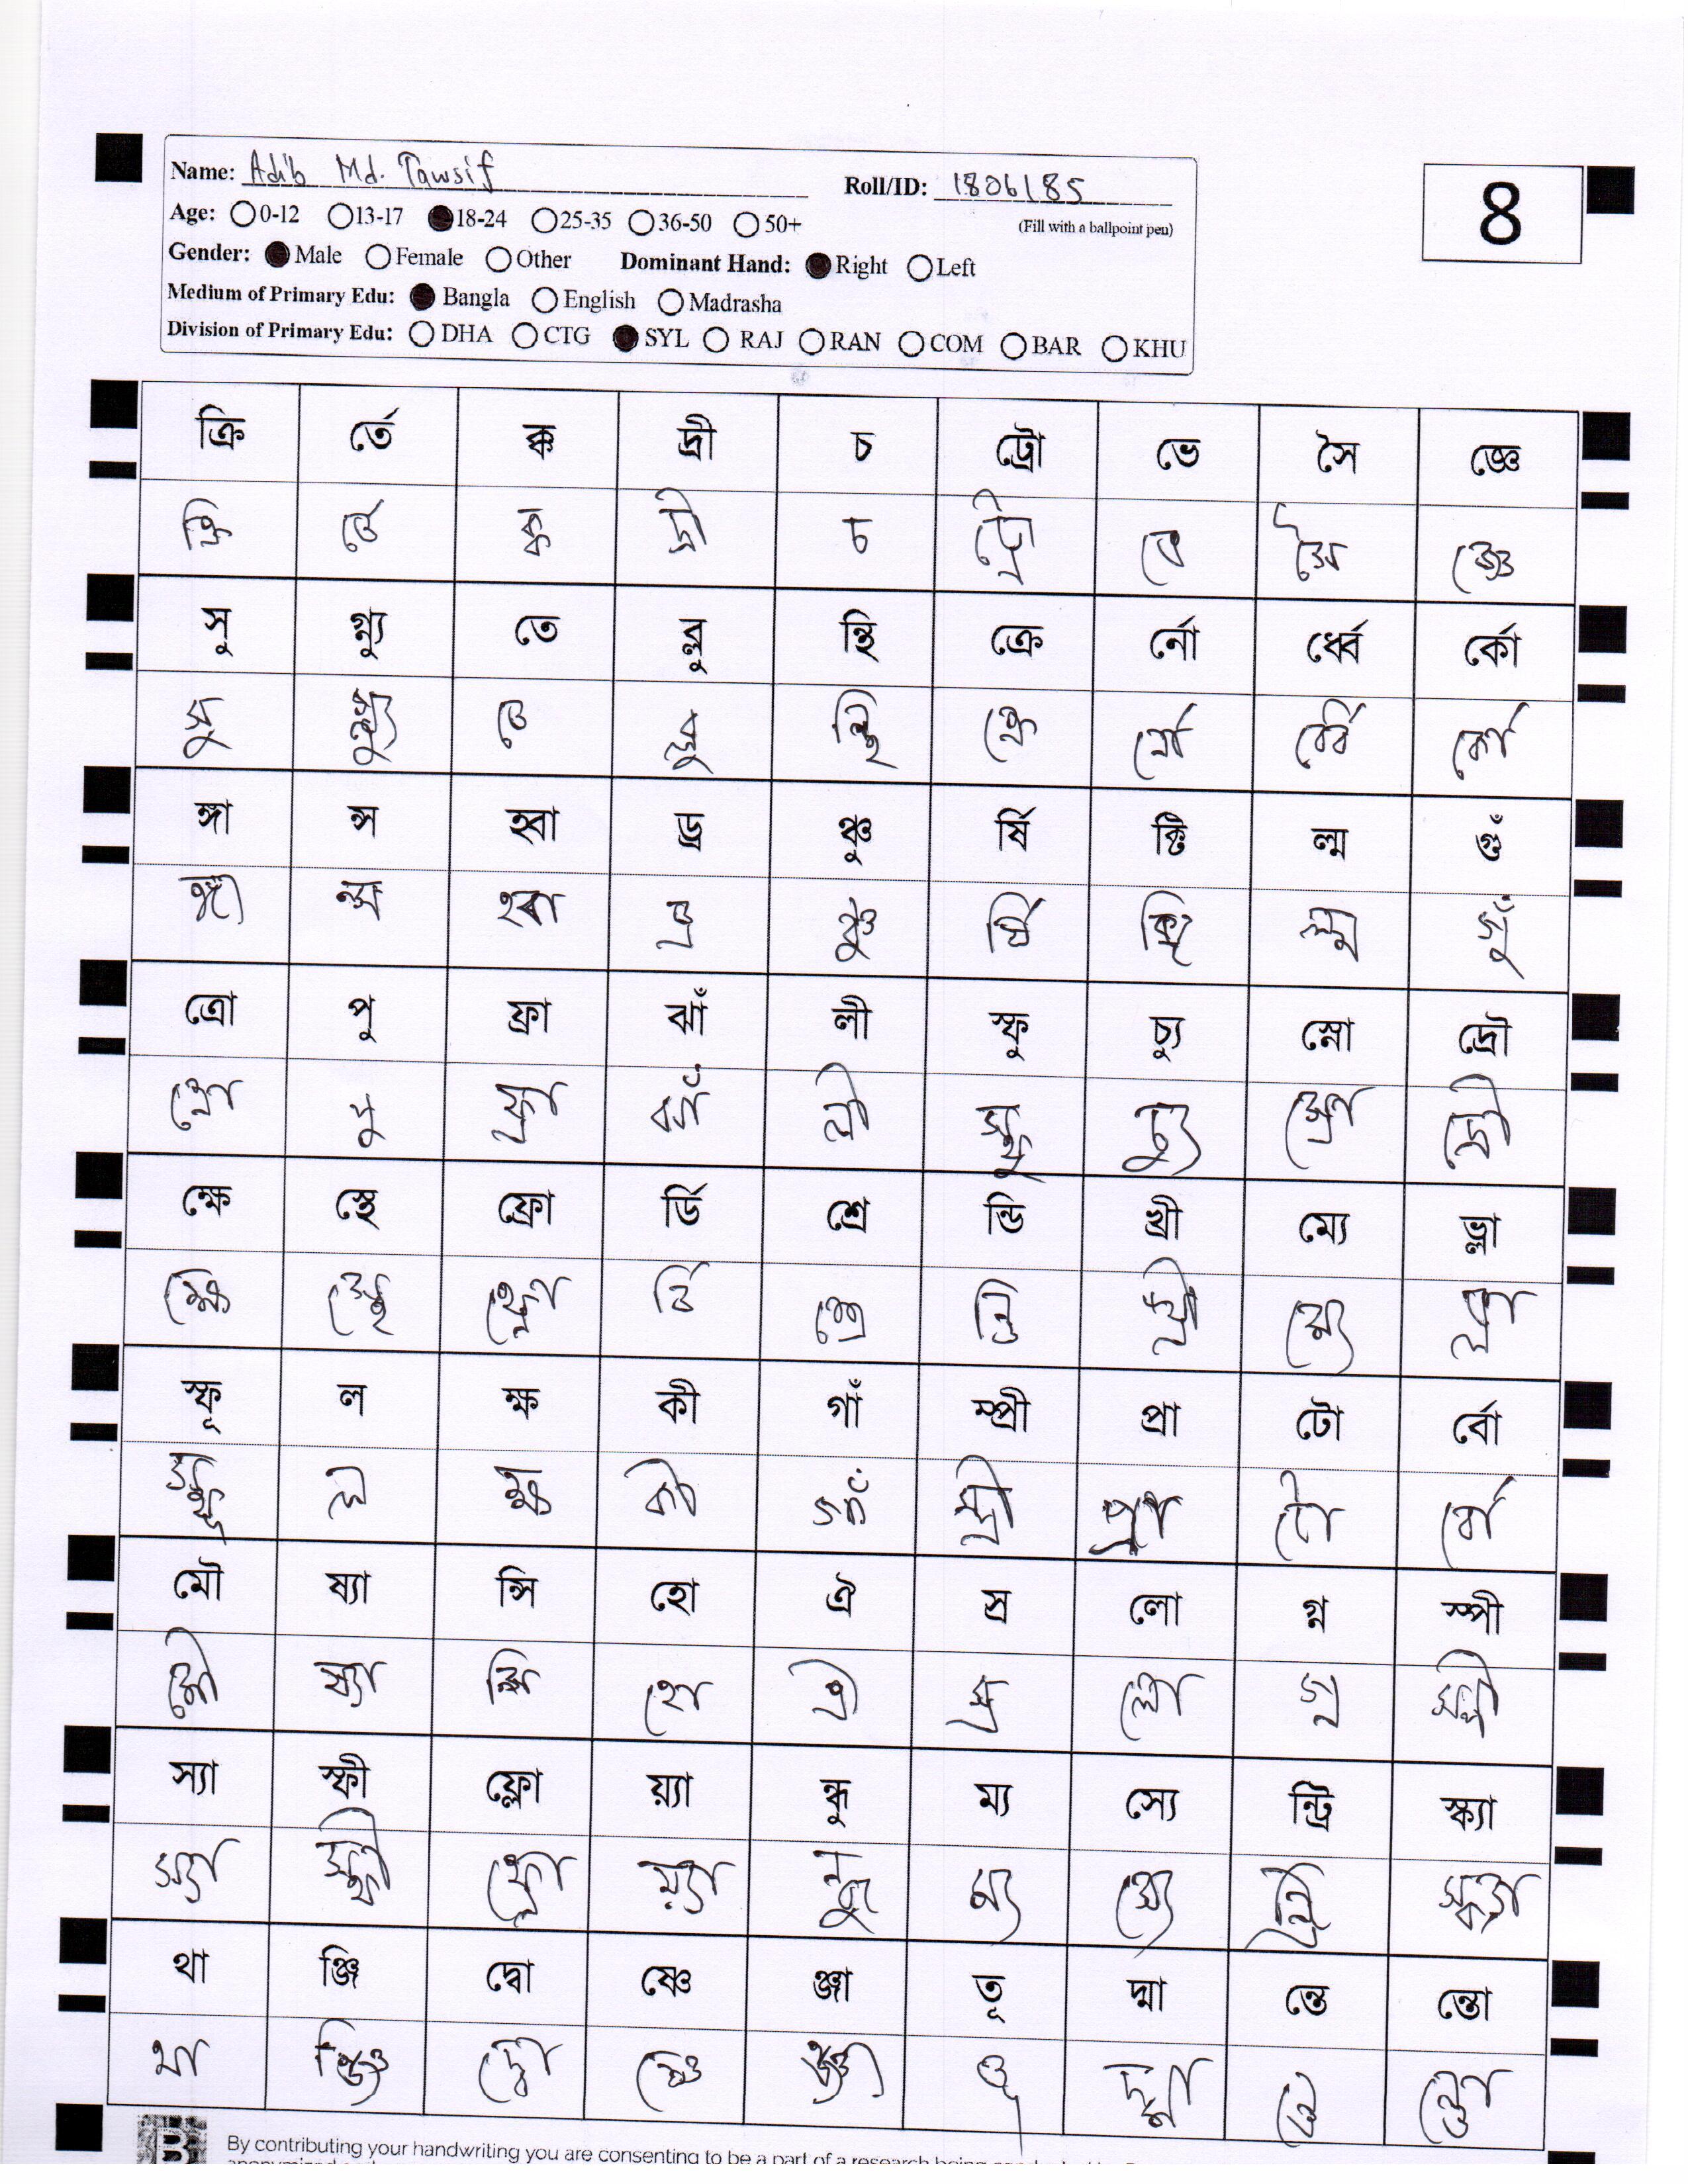 Name: Adib Md. Tawsif Roll/ID: 1806185
8
Age: 0-12 13-17 18-24 25-35 36-50 50+ (Fill with a ballpoint pen)
Gender: Male Female Other Dominant Hand: Right Left
Medium of Primary Edu: Bangla English Madrasha
Division of Primary Edu: DHA CTG SYL RAJ RAN COM BAR KHU
ক্রি র্তে ক্ক দ্রী চ ট্রো ভে সৈ জ্ঞে
ক্রি র্তে ক্ক দ্রী চ ট্রো ভে সৈ জ্ঞে
সু গ্ন্যু তে ন্থি ক্রে র্নো র্ধ্বে র্কো
সু তে ন্থি ক্রে র্নো র্ধ্বে র্কো
ঙ্গা ন্স হ্বা ড্র ঞ্চু র্ষি ক্টি ল্ম গুঁ
ঙ্গা ন্স হ্বা ড্র র্ষি ক্টি ল্ম গুঁ
ত্রো পু ফ্রা ঝাঁ লী স্ফু চ্যু স্নো দ্রৌ
ত্রো পু ফ্রা ঝাঁ লী স্ফু চ্যু স্নো দ্রৌ
ক্ষে স্থে ফ্রো র্ডি শ্রে ন্ডি থ্রী ম্যে ভ্লা
ক্ষে স্থে ফ্রো র্ডি শ্রে ন্ডি থ্রী ম্যে ভ্লা
স্ফূ ল ক্ষ কী গাঁ ম্প্রী প্রা টো র্বো
স্ফূ ল ক্ষ কী গাঁ ম্প্রী প্রা টো র্বো
মৌ ষ্যা ন্সি হো ঐ স্র লো গ্ন স্পী
মৌ ষ্যা ন্সি হো ঐ স্র লো গ্ন স্পী
স্যা স্ফী ফ্লো য়্যা ন্ধু ম্য স্যে ন্ট্রি স্ক্যা
স্যা স্ফী ফ্লো য়্যা ন্ধু ম্য স্যে ন্ট্রি স্ক্যা
থা ঞ্জি দ্বো ষ্ণে ঞ্জা তূ দ্মা ন্তে ন্তো
থা ঞ্জি দ্বো ষ্ণে ঞ্জা তূ দ্মা ন্তে ন্তো
By contributing your handwriting you are consenting to be a part of a research being